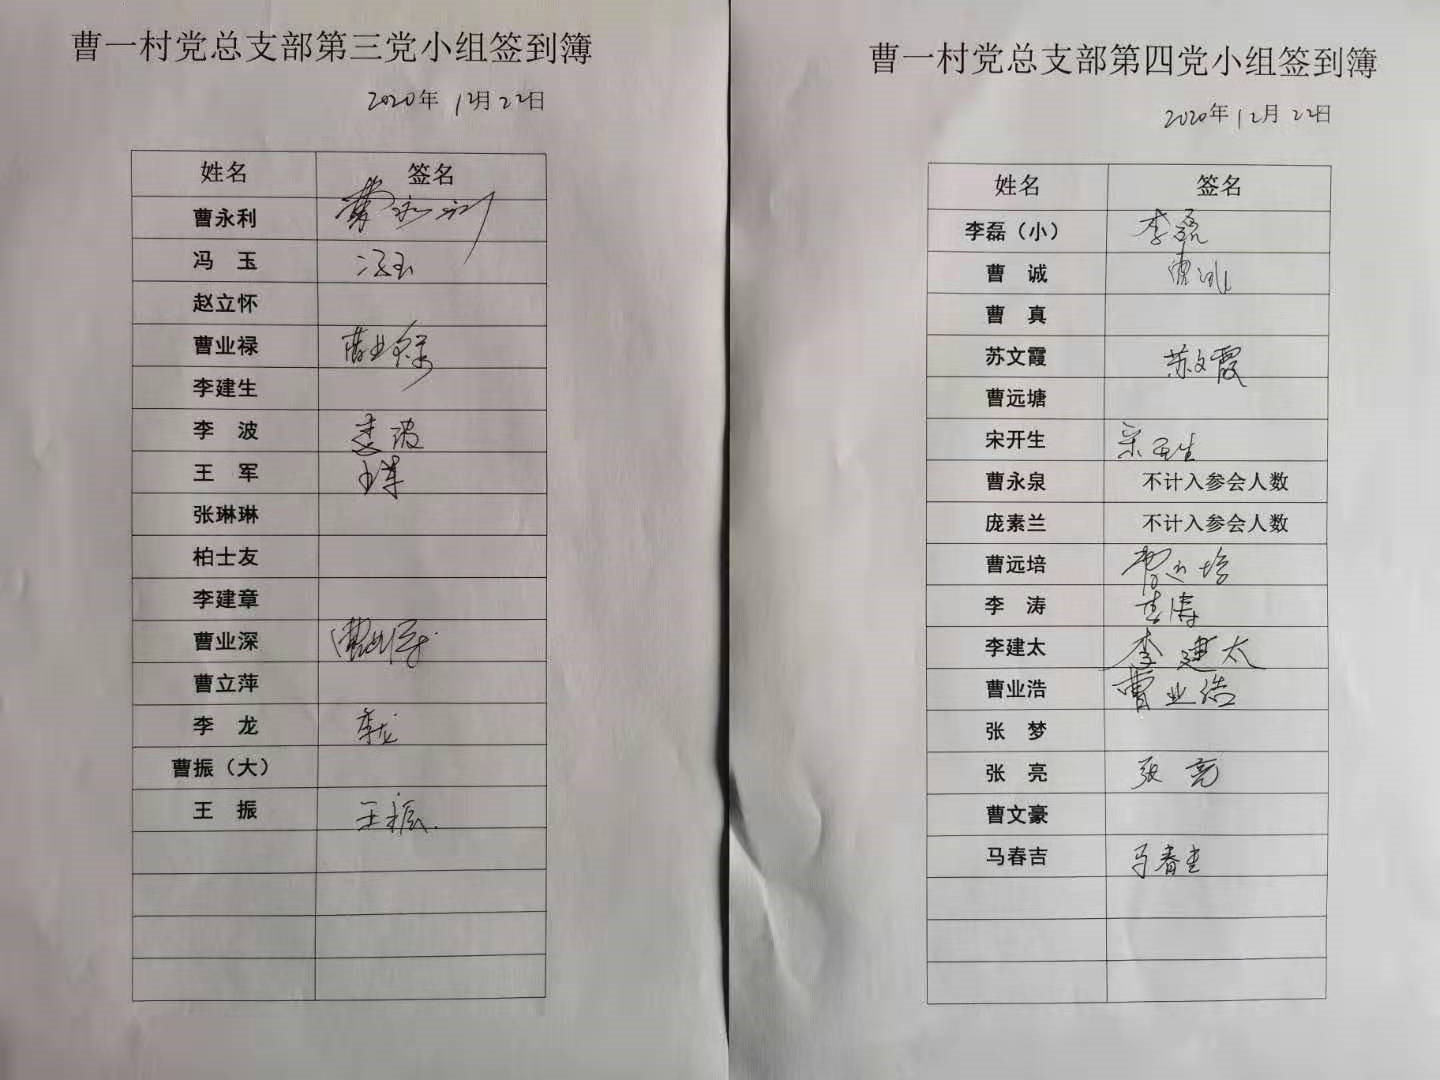 曹一村党总支部第三党小组签到簿
2020年 12月 22日
姓名 签名
曹永利 曹永利
冯 玉 冯玉
赵立怀
曹业禄 曹业禄
李建生
李 波 李波
王 军 王军
张琳琳
柏士友
李建章
曹业深 曹业深
曹立萍
李 龙 李龙
曹振（大）
王 振 王振
曹一村党总支部第四党小组签到簿
2020年 12月 22日
姓名 签名
李磊（小） 李磊
曹 诚 曹诚
曹 真
苏文霞 苏文霞
曹远塘
宋开生 宋开生
曹永泉 不计入参会人数
庞素兰 不计入参会人数
曹远培 曹远培
李 涛 李涛
李建太 李建太
曹业浩 曹业浩
张 梦
张 亮 张亮
曹文豪
马春吉 马春吉